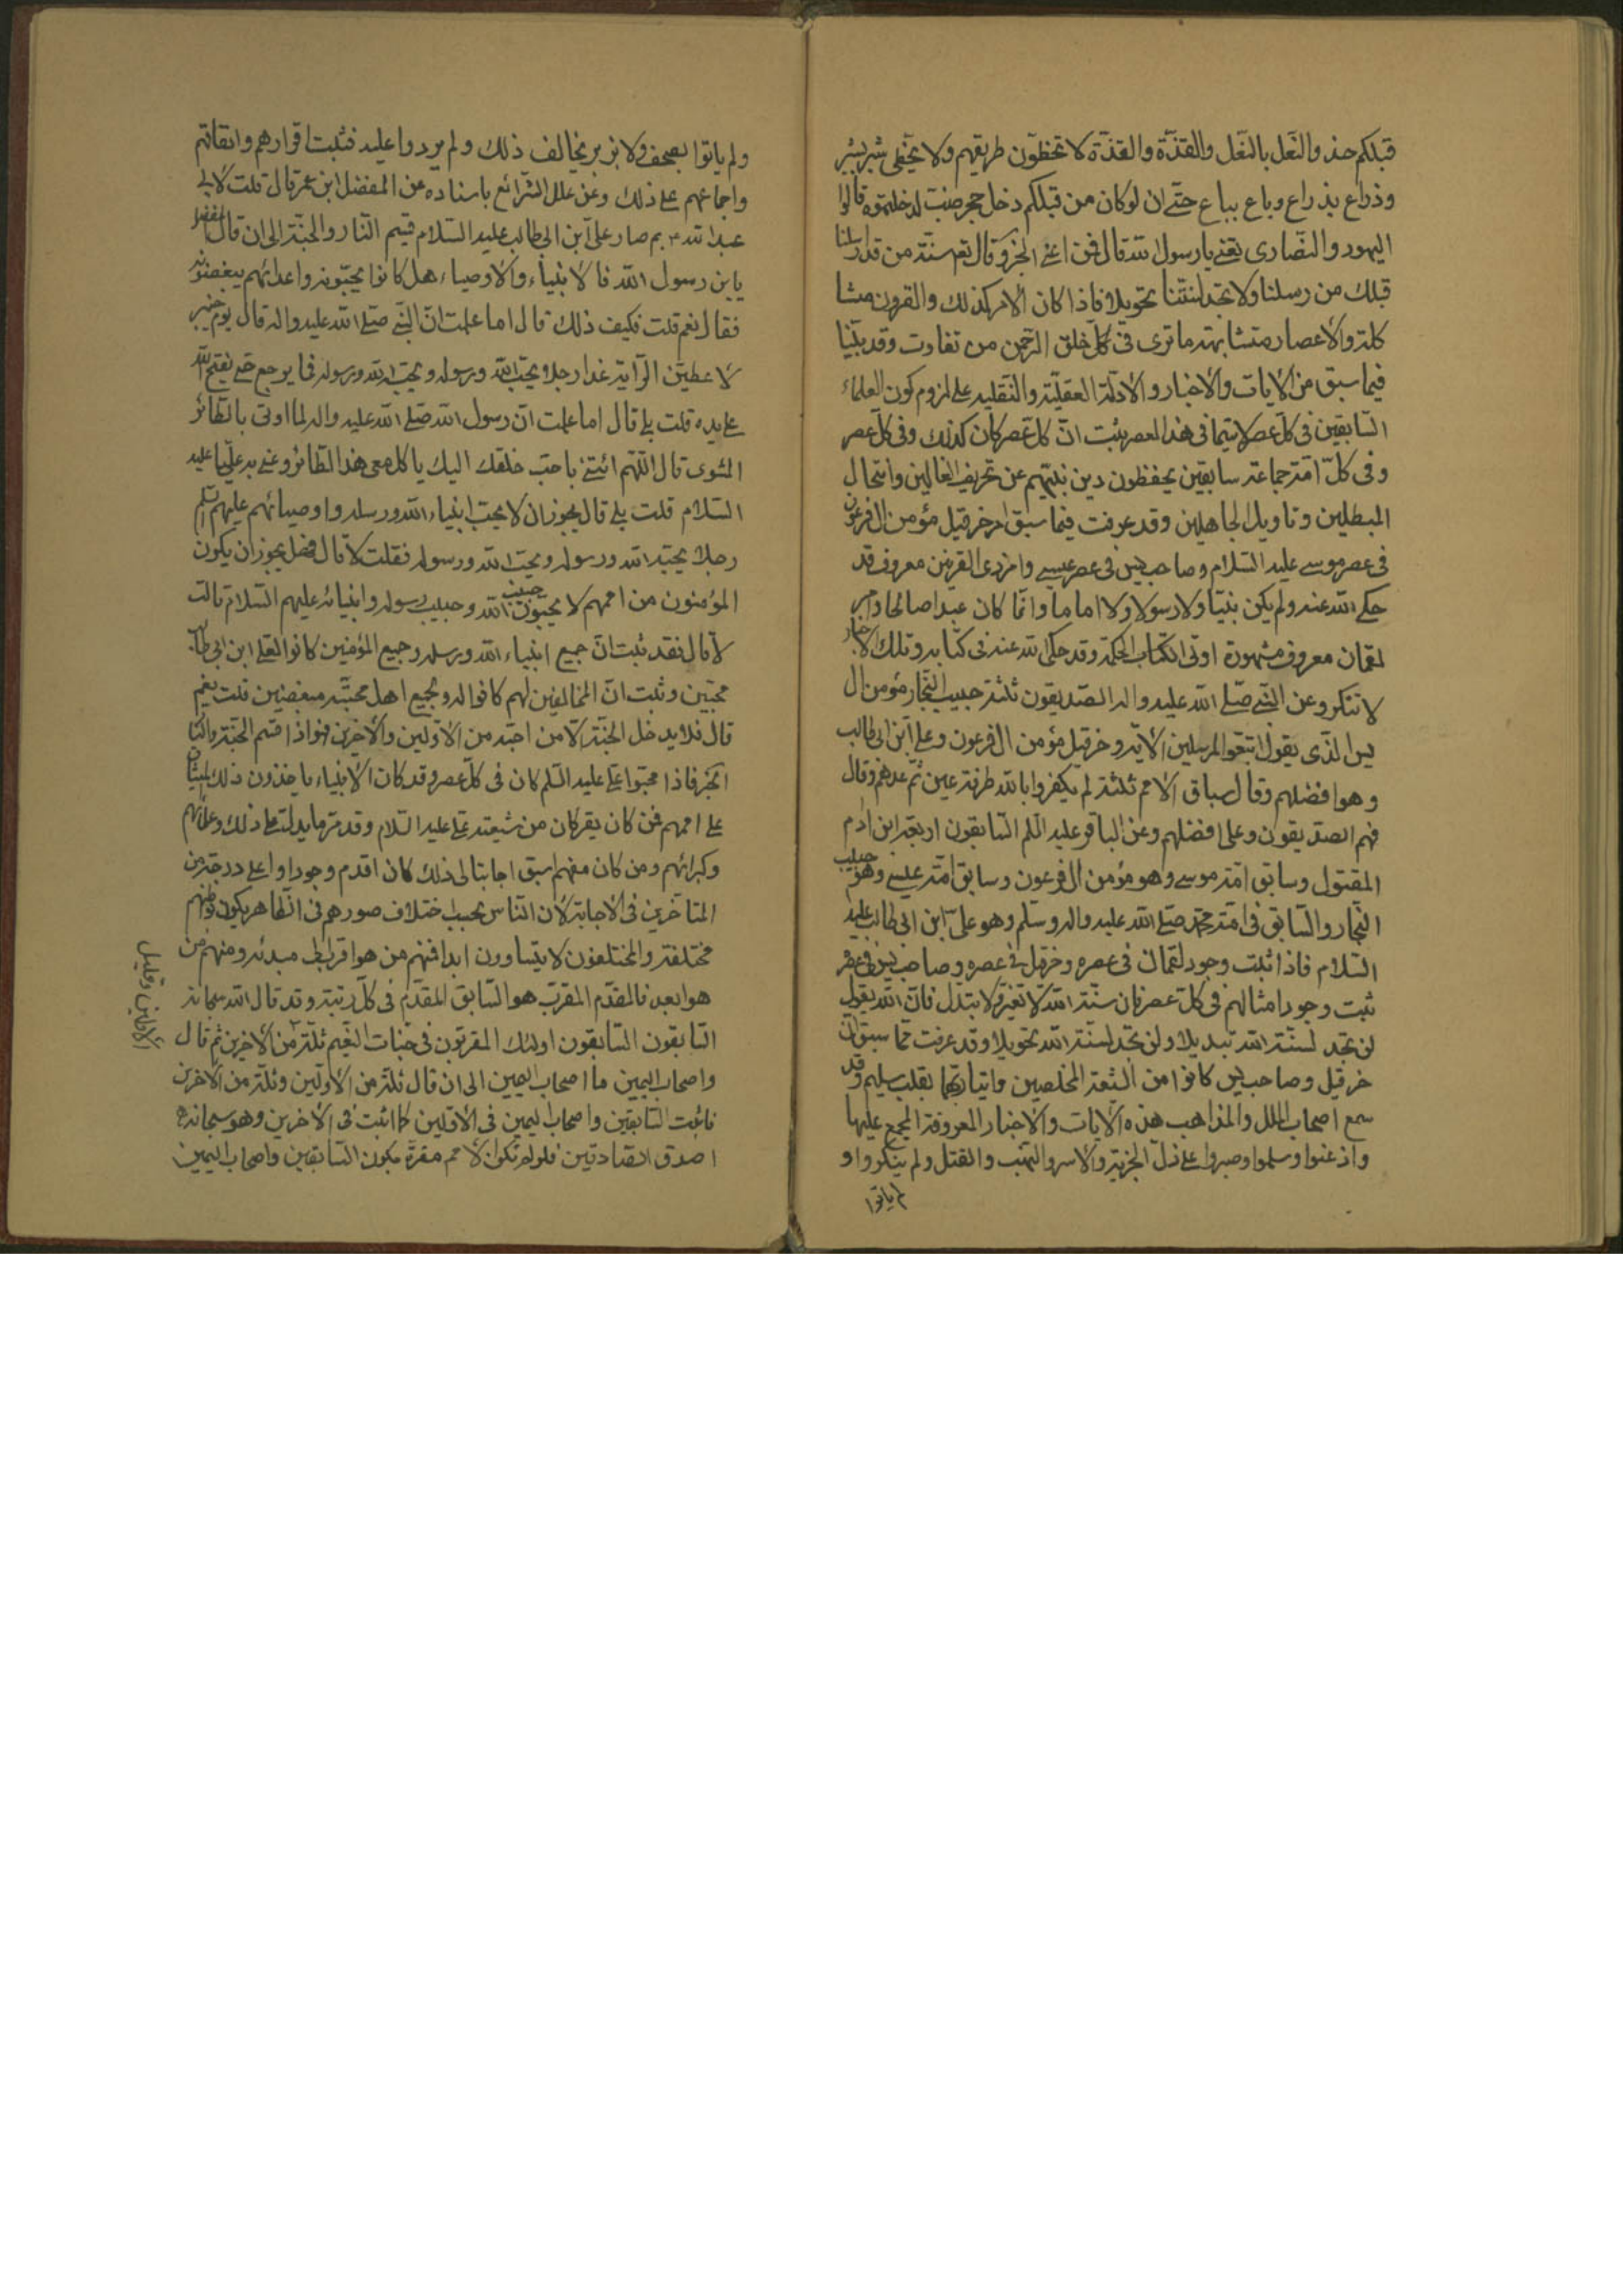 قبلكم حذو النّعل بالنّعل والقذّة والقذّة لا تخطّون طريقهم ولا يخطى شبر بشبر
وذراع بذراع وباع بباع حتّى ان لو كان من قبلكم دخل حجر ضبّ لدخلتموه قالوا
اليهود والنّصارى تعنى يا رسول الله قال فمن اعنى الخ وقال تعم سنّة من قد ارسلنا
قبلك من رسلنا ولا تجد لسنّتنا تحويلا فاذا كان الامر كذلك والقرون متشا
كلة والاعصار متشابهة ما ترى فى كل خلق الرّحمن من تفاوت وقد بيّنا
فيما سبق من الايات والاخبار والادلّة العقليّة والنّقليه على لزوم كون العلماء
السّابقين فى كلّ عصر لا سيّما فى هذا العصر يثبت انّ كلّ عصر كان كذلك وفى كلّ عصر
وفى كلّ امّة جماعة سابقين يحفظون دين نبيّهم عن تحريف الغالين وانتحال
المبطلين وتاويل الجاهلين وقد عرفت فيما سبق امر خرقيل مؤمن ال فرعون
فى عصر موسى عليه السّلام وصاحب يس فى عصر عيسى وامر ذى القرنين معروف قد
حكى الله عنه ولم يكن نبيّا ولا رسولا ولا اماما وانّما كان عبدا صالحا وامر
لقمان معروف مشهورة اوتى الكتاب الحكمة وقد حكى الله عنه فى كتابه وتلك الاخبار
لا تنكر وعن النّبى صلّى الله عليه واله الصّديقون ثلثة حبيب النّجار مؤمن ال
يس الّذى يقول اتبعوا المرسلين الاية وخرقيل مؤمن ال فرعون وعلى ابن ابى طالب
وهو افضلهم وقال سباق الامم ثلثة لم يكفروا بالله طرفة عين ثم عدهم وقال
فهم الصدّيقون وعلى افضلهم وعن الباقر عليه السّلم السّابقون اربعة ابن ادم
المقتول وسابق امّة موسى وهو مؤمن ال فرعون وسابق امّة عيسى وهو حبيب
النّجار والسّابق فى امّة محمّد صلّى الله عليه واله وسلّم وهو علىّ ابن ابى طالب عليه
السّلام فاذا ثبت وجود لقمان فى عصره وخرقيل فى عصره وصاحب يس فى عصره
ثبت وجود امثالهم فى كلّ عصر فان سنّة الله لا تغيّر ولا تبدل فانّ الله يقول
لن تجد لسنّة الله تبديلا ولن تجد لسنّة الله تحويلا وقد عرفت ممّا سبق انّ
خرقيل وصاحب يس كانوا من الشّيعة المخلصين واتيا ربّهما بقلب سليم وقد
سمع اصحاب الملل والمذاهب هذه الايات والاخبار المعروفة المجمع عليها
واذعنوا وسلموا وصبروا على ذلّ الجزية والاسر والنّهب والقتل ولم ينكروا و
لم ياتوا
ولم ياتوا بصحف ولا بزبر يخالف ذلك ولم يردوا عليه فثبت اقرارهم واتفاقهم
واجماعهم على ذلك وعن علل الشّرائع باسناده عن المفضل ابن عمر قال قلت لابى
عبد الله ع بم صار علىّ ابن ابى طالب عليه السّلام قسيم النّار والجنّة الى ان قال المفضل
يا بن رسول الله فالانبياء والاوصياء هل كانوا يحبّونه واعدائهم يبغضونه
فقال نعم قلت فكيف ذلك قال اما علمت انّ النّبى صلّى الله عليه واله قال يوم خيبر
لاعطينّ الرّاية غدا رجلا يحبّ الله ورسوله ويحبّه الله ورسوله فما يرجع حتّى يفتح الله
على يده قلت بلى قال اما علمت انّ رسول الله صلّى الله عليه واله لما اوتى بالطّائر
المشوى قال اللّهم ائتنى باحبّ خلقك اليك ياكل معى هذا الطّائر وعنى به عليّا عليه
السّلام قلت بلى قال يجوز ان لا يحبّ انبياء الله ورسله واوصيائهم عليهم السّلم
رجلا يحبّه الله ورسوله ويحبّ الله ورسوله فقلت لا قال فهل يجوز ان يكون
المؤمنون من اممهم لا يحبّون حبيب الله وحبيب رسوله وانبيائه عليهم السّلام قلت
لا قال فقد ثبت انّ جميع انبياء الله ورسله وجميع المؤمنين كانوا لعلى ابن ابى طالب
محبّين وثبت انّ المخالفين لهم كانوا له ولجميع اهل محبّته مبغضين قلت نعم
قال فلا يدخل الجنّة الا من احبّه من الاوّلين والاخرين فهو اذا قسيم الجنّة والنّار
الخبر فاذا احبّوا على عليه السّلم كان فى كلّ عصر وقد كان الانبياء ياخذون ذلك الميثاق
على اممهم فمن كان يقر كان من شيعته على عليه السّلام وقد مرّ ما يدلّ على ذلك وعلمائهم
وكبرائهم ومن كان منهم اسبق اجابتا لى ذلك كان اقدم وجودا واعلى درجة من
المتاخّرين فى الاجابة لان النّاس بحسب اختلاف صورهم فى الظّاهر يكون بواطنهم
مختلفة والمختلفون لا يتساوون ابدا فمنهم من هو اقرب الى مبدئه ومنهم من
هو ابعد فالمقدّم المقرب هو السّابق المقدّم فى كلّ رتبة وقد قال الله سبحانه
السّابقون السّابقون اولئك المقرّبون فى جنّات النّعيم ثلّة من الاخرين ثمّ قال
الاوّلين وقليل
واصحاب اليمين ما اصحاب اليمين الى ان قال ثلّة من الاوّلين وثلّة من الاخرين
فاثبت السّابقين واصحاب اليمين فى الاوّلين كما اثبت فى الاخرين وهو سبحانه
اصدق الصّادقين فلو لم تكون الامم مقرّة بكون السّابقين واصحاب اليمين